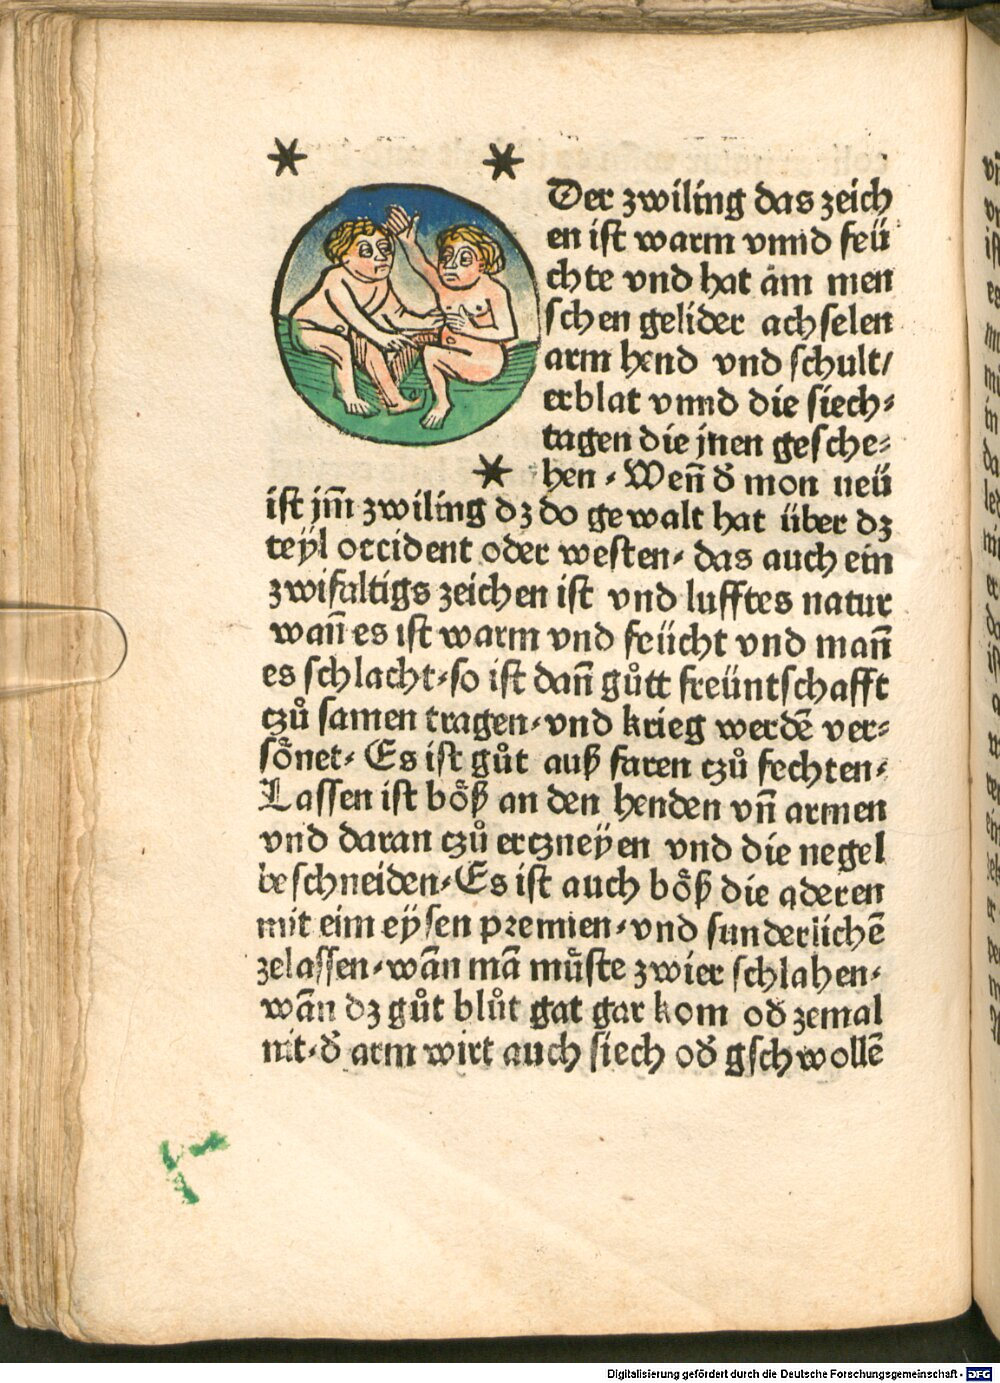 Der zwiling das zeich
en ist warm vnnd feü
chte vnd hat am men
schen gelider achselen
arm hend vnd schult/
erblat vnnd die siech⸗
tagen die jnen gesche⸗
hen⸗ Weñ d᷑ mon neü
ist jm̃ zwiling dz do gewalt hat über dz
teÿl occident oder westen⸗ das auch ein
zwifaltigs zeichen ist vnd lufftes natur
wañ es ist warm vnd feücht vnd mañ
es schlacht⸗so ist dañ gůtt freüntschafft
czů samen tragen⸗vnd krieg werdẽ ver⸗
soͤnet⸗ Es ist gůt auß faren czů fechten⸗
Lassen ist boͤß an den henden vñ armen
vnd daran czů erczneÿen vnd die negel
beschneiden⸗Es ist auch boͤß die aderen
mit eim eÿsen premien⸗vnd sunderlichẽ
zelassen⸗wãn mã muͤste zwier schlahen⸗
wãn dz gůt blůt gat gar kom od᷑ zemal
nit⸗d᷑ arm wirt auch siech od᷑ gschwollẽ
Digitalisierung gefördert durch die Deutsche Forschungsgemeinschaft - DFG